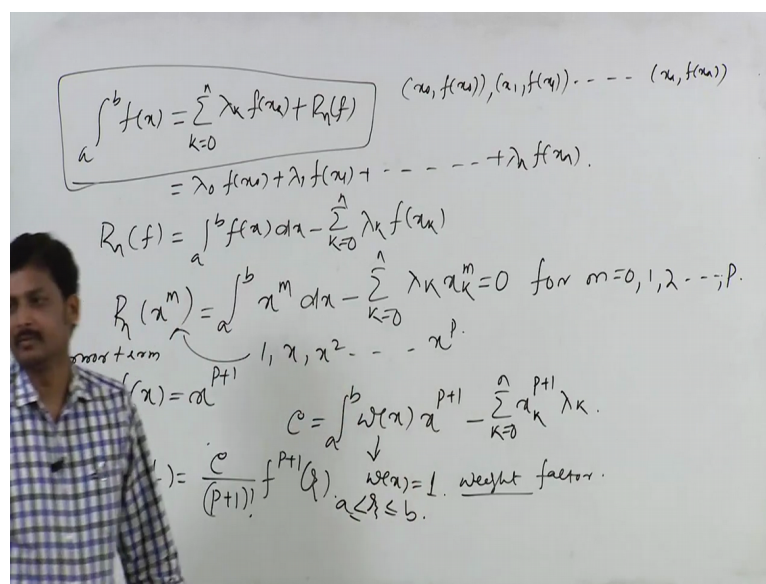 (x₀, f(x₀)), (x₁, f(x₁)) ----- (xₙ, f(xₙ))
∫ₐᵇ f(x) = ∑ₖ₌₀ⁿ λₖ f(xₖ) + Rₙ(f)
= λ₀ f(x₀) + λ₁ f(x₁) + - - - - - - + λₙ f(xₙ).
Rₙ(f) = ∫ₐᵇ f(x) dx - ∑ₖ₌₀ⁿ λₖ f(xₖ)
Rₙ(xᵐ) = ∫ₐᵇ xᵐ dx - ∑ₖ₌₀ⁿ λₖ xₖᵐ = 0 for m=0, 1, 2 - - -, p.
error term
1, x, x² - - - - xᵖ.
(x) = xᵖ⁺¹
C = ∫ₐᵇ w(x) xᵖ⁺¹ - ∑ₖ₌₀ⁿ xₖᵖ⁺¹ λₖ.
↓
) = C/(p+1)! fᵖ⁺¹(ξ). w(x) = 1. weight factor.
a ≤ ξ ≤ b.